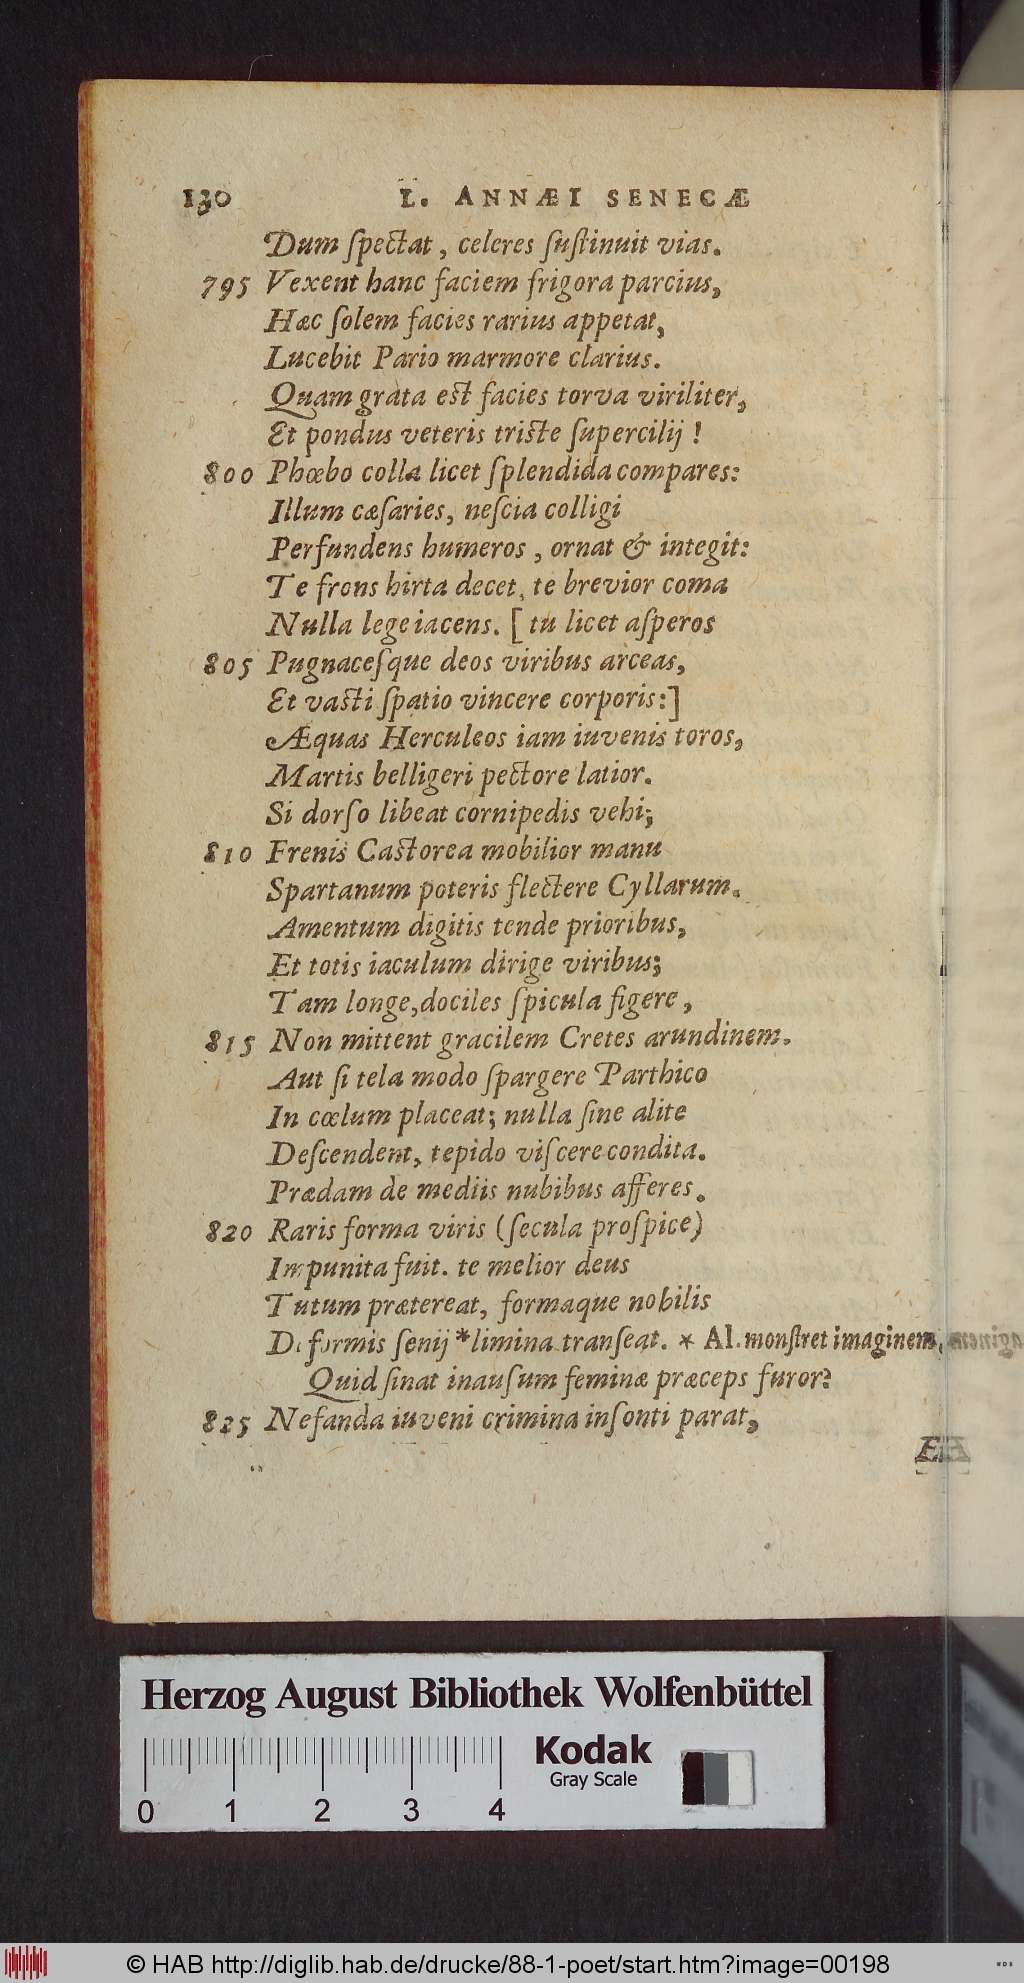 130 L. ANNÆI SENECÆ
Dum ſpectat, celeres ſuſtinuit vias.
795 Vexent hanc faciem frigora parcius,
Hæc ſolem facies rarius appetat,
Lucebit Pario marmore clarius.
Quam grata est facies torva viriliter,
Et pondus veteris triſte ſupercilij!
800 Phœbo colla licet ſplendida compares:
Illum cæſaries, neſcia colligi
Perfundens humeros, ornat & integit:
Te frons hirta decet, te brevior coma
Nulla lege iacens. [tu licet aſperos
805 Pugnaceſque deos viribus arceas,
Et vaſti ſpatio vincere corporis:]
Æquas Herculeos iam iuvenis toros,
Martis belligeri pectore latior.
Si dorſo libeat cornipedis vehi;
810 Frenis Caſtorea mobilior manu
Spartanum poteris flectere Cyllarum.
Amentum digitis tende prioribus,
Et totis iaculum dirige viribus;
Tam longe, dociles ſpicula figere,
815 Non mittent gracilem Cretes arundinem.
Aut ſi tela modo ſpargere Parthico
In cœlum placeat; nulla ſine alite
Deſcendent, tepido viſcere condita.
Prædam de mediis nubibus afferes.
820 Raris forma viris (ſecula proſpice)
Impunita fuit. te melior deus
Tutum prætereat, formaque nobilis
Deformis ſenij * limina tranſeat. * Al. monſtret imaginem.
Quid ſinat inauſum feminæ præceps furor?
825 Nefanda iuveni crimina inſonti parat,
Herzog August Bibliothek Wolfenbüttel
Kodak
Gray Scale
0 1 2 3 4
© HAB http://diglib.hab.de/drucke/88-1-poet/start.htm?image=00198